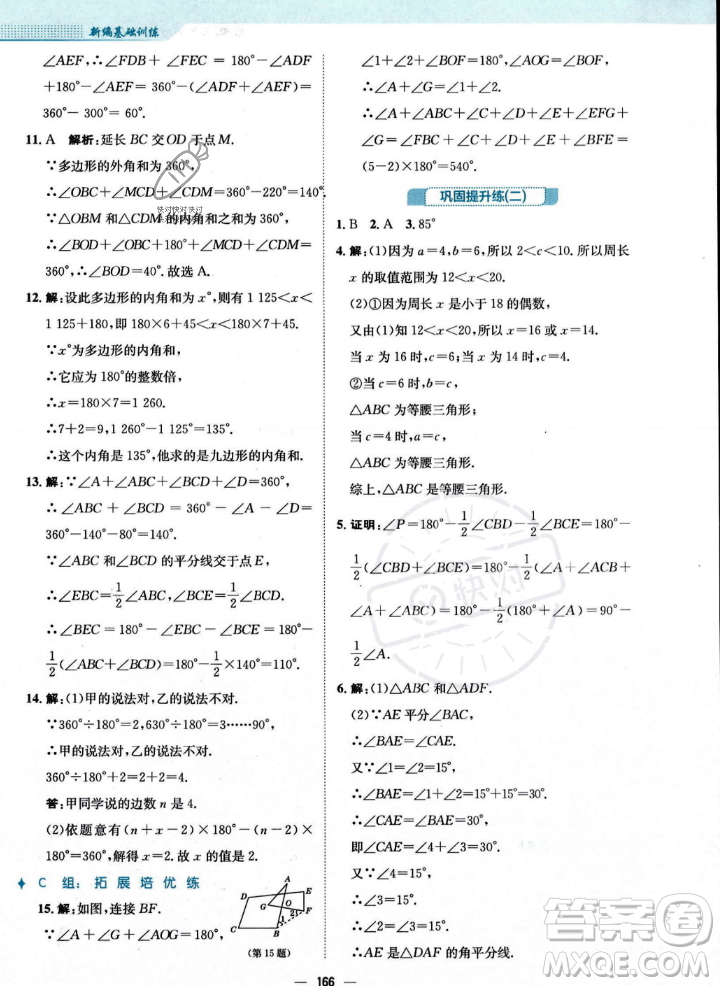 新编基础训练
∠AEF,∴∠FDB+∠FEC=180°-∠AEF+
180°-∠AEF=360°-(∠AEF+∠AEF)=
360°-300°=60°.
11. A 解析:延长BC交OD于点M.
∵多边形的外角和为360°,
∴∠OBC+∠MCD+∠CDM=360°-220°=140°.
∵△OBM和△CDM的内角和之和为360°,
∴∠BOD=40°.故选A.
12. 解:设此多边形的内角和为x°,则有1 125<x<
1 125+180,即180×6+45<x<180×7+45.
∵x°为多边形的内角和,
∴它应为180°的整数倍,
∴x=180×7=1 260.
∴7+2=9,1 260°-1 125°=135°.
∴这个内角为135°,他求的是九边形的内角和.
13. 解:∵∠A+∠ABC+∠BCD+∠D=360°,
∴∠ABC+∠BCD=360°-∠A-∠D=
360°-140°-80°=140°.
∵∠ABC和∠BCD的平分线交于点E,
∴∠EBC=1/2∠ABC,∠BCE=1/2∠BCD.
∴∠BEC=180°-∠EBC-∠BCE=180°-
1/2(∠ABC+∠BCD)=180°-1/2×140°=110°.
14. 解:(1)甲的说法对,乙的说法不对.
∵360°÷180°=2,630°÷180°=3……90°,
∴甲的说法对,乙的说法不对.
360°÷180°+2=2+2=4.
答:甲同学说的边数n是4.
(2)依题意有(n+x-2)×180°-(n-2)×
180°=360°,解得x=2.故x的值是2.
C组:拓展培优练
15. 解:如图,连接BF.
∵∠A+∠G+∠AOG=180°,
A
D
E
G
O
F
2
1
C
B
(第15题)
∠1+∠2+∠BOF=180°,∠AOG=∠BOF,
∴∠A+∠G=∠1+∠2.
∴∠A+∠ABC+∠C+∠D+∠E+∠EFG+
∠G=∠ABC+∠C+∠D+∠E+∠EFG+
∠1+∠2=∠CBF+∠C+∠D+∠E+∠BFE=
(5-2)×180°=540°.
巩固提升练(二)
1. B 2. A 3. 85°
4. 解:(1)因为a=4,b=6,所以2<c<10.所以周长
x的取值范围为12<x<20.
(2)①因为周长x是小于18的偶数,
又由(1)知12<x<20,所以x=16或x=14.
当x为16时,c=6;当x为14时,c=4.
②当c=6时,b=c,
△ABC为等腰三角形;
当c=4时,a=c,
△ABC为等腰三角形.
综上,△ABC是等腰三角形.
5. 证明:∠P=180°-1/2∠CBD-1/2∠BCE=180°-
1/2(∠CBD+∠BCE)=180°-1/2(∠A+∠ACB+
∠A+∠ABC)=180°-1/2(180°+∠A)=90°-
1/2∠A.
6. 解:(1)△ABC和△ADF.
(2)∵AE平分∠BAC,
∴∠BAE=∠CAE.
又∵∠1=∠2=15°,
∴∠BAE=∠1+∠2=15°+15°=30°.
∴∠CAE=∠BAE=30°,
即∠CAE=∠4+∠3=30°.
又∵∠4=15°,
∴∠3=15°.
∴∠2=∠3=15°.
∴AE是△DAF的角平分线.
166
快对快对快对
快对快对快对
快对
答案圈
MXQE.COM